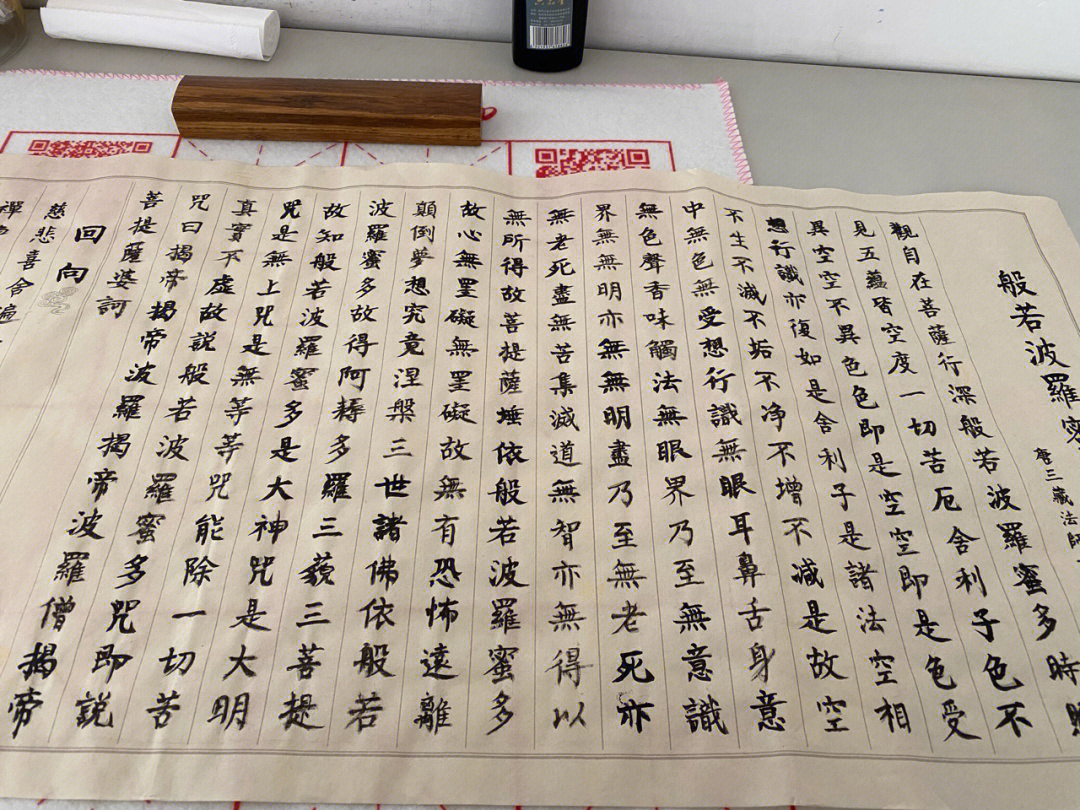 般若波羅蜜
唐三藏法師
觀自在菩薩行深般若波羅蜜多時照
見五蘊皆空度一切苦厄舍利子色不
異空空不異色色即是空空即是色受
想行識亦復如是舍利子是諸法空相
不生不滅不垢不净不增不減是故空
中無色無受想行識無眼耳鼻舌身意
無色聲香味觸法無眼界乃至無意識
界無無明亦無無明盡乃至無老死亦
無老死盡無苦集滅道無智亦無得以
無所得故菩提薩埵依般若波羅蜜多
故心無罣礙無罣礙故無有恐怖遠離
顛倒夢想究竟涅槃三世諸佛依般若
波羅蜜多故得阿耨多羅三藐三菩提
故知般若波羅蜜多是大神咒是大明
咒是無上咒是無等等咒能除一切苦
真實不虛故説般若波羅蜜多咒即説
咒曰揭帝揭帝波羅揭帝波羅僧揭帝
菩提薩婆訶
回向
慈悲喜舍遍
禪